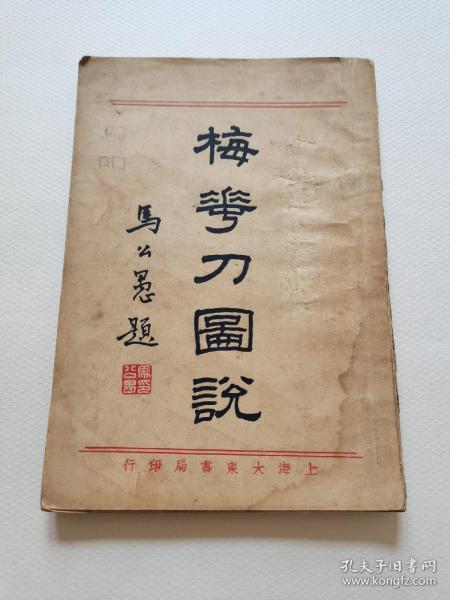 梅花刀圖說
馬公愚題
馬公愚印
上海大東書局印行
孔夫子旧书网
www.kongfz.com